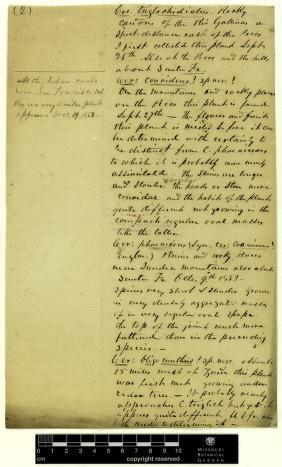 (2)
Cer. Triglochidiatus. Rocky
cañons of the Rio Gallinas a
short distance east of the Pecos
I first collected this plant Sept.
25th
about Santa Fe.
Cer: conoideus? Sp nov?
On the mountains and rocky places
on the Pecos this plant is found
Sept 27th — the flower and fruit
of this plant is needed before it can
be determined with certainty to
be distinct from C. phoeniceus
to which it is probably more nearly
assimilated — The spines are longer
and stouter the heads or stem more
conoidal and the habit of the plant
quite different not growing in the
compact regular oval masses
like the latter.
Cer: phoeniceus (Syn. Cer: coccineus?
Englm.) Plains and rocky places
near Sandia mountains also about
Santa Fe Octo. 9th 1853.
Spines very short & slender grows
in very densely aggregated masses
of a very regular oval shape
the top of the joints much more
flattened than in the preceding
Species. —
Cer: Oligacanthus? Sp. nov. About
15 miles west of Zuñi this plant
was first met growing under
cedar trees — It probably nearly
approaches C. triglochid. but yet it
appears quite different
needed to determine it —
At the Indian
San Francisco
a very similar plant
appears Dec 1853
0 1 2 3 4 5 6 7 8 9 10
MISSOURI
BOTANICAL
GARDEN